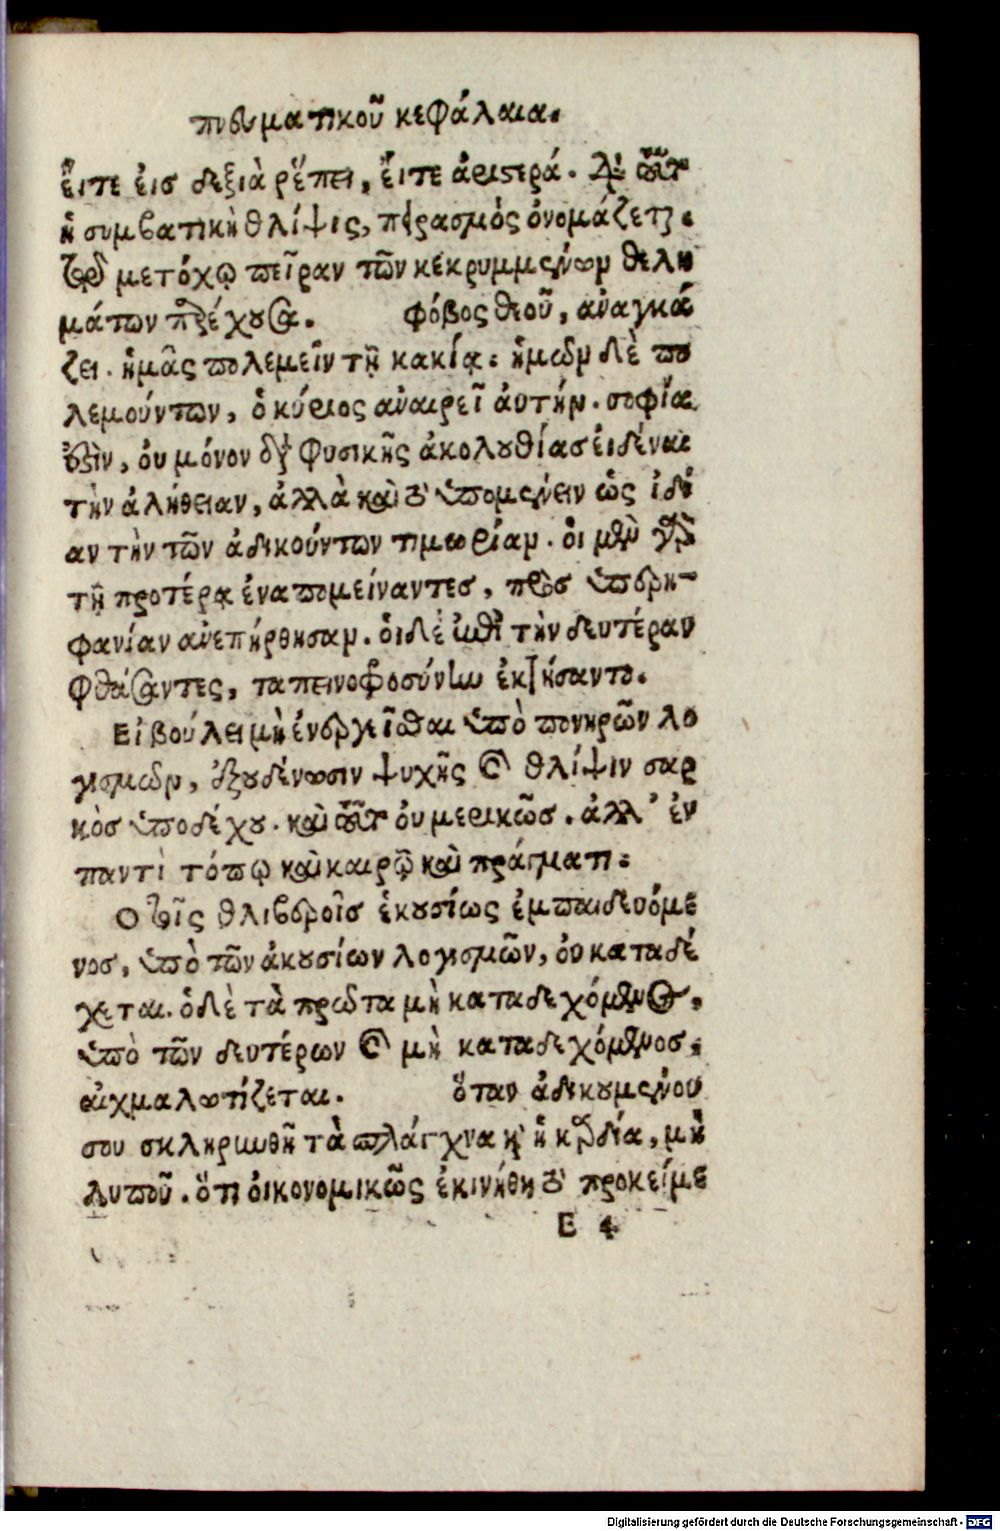 πνευματικοῦ κεφάλαια.
εἴτε εἰσ δεξιὰ ῥέπει, εἴτε ἀριστερά. διὰ τοῦτ
ἡ συμβατικὴ θλίψις, πειρασμὸς ὀνομάζεται.
τῷ μετόχῳ πεῖραν τῶν κεκρυμμένωμ θελη
μάτων παρέχουσα. φόβος θεοῦ, αναγκά
ζει ἡμᾶς πολεμεῖν τῇ κακίᾳ. ἡμῶμ δὲ πο
λεμούντων, ὁ κύριος αναιρεῖ ἀυτήμ. σοφία
ἐστὶν, ὀυ μόνον ἐκ φυσικῆς ἀκολουθίασ ἐιδέναι
τὴν ἀλήθειαν, ἀλλὰ καὶ τὸ ὑπομένειν ὡς ἰδί
αν τὴν τῶν ἀδικούντων τιμωρίαμ. ὁι μὲν γὰρ
τῇ προτέρᾳ ἐναπομείναντεσ, πρὸσ ὑπερη-
φανίαν ανεπήρθησαμ. ὁιδὲ ἐπὶ τὴν δευτέραν
φθάσαντες, ταπεινοφροσύνην ἐκτήσαντο.
Εἰ βούλει μὴ ἐνεργεῖσθαι ὑπὸ πονηρῶν λο
γισμῶμ, ἐξουδένωσιν ψυχῆς καὶ θλίψιν σαρ
κὸσ ὑποδέχου. καὶ τοῦτ ὀυ μερικῶσ. ἀλλ' ἐν
παντὶ τόπῳ καὶ καιρῷ καὶ πράγματι.
Ο τοῖς θλιβεροῖσ ἑκουσίως ἐμπαιδευόμε
νοσ, ὑπὸ τῶν ἀκουσίων λογισμῶν, ὀυ καταδέ
χεται. ὁδὲ τὰ πρῶτα μὴ καταδεχόμενος,
ὑπὸ τῶν δευτέρων καὶ μὴ καταδεχόμενοσ,
αἰχμαλωτίζεται. ὅταν ἀδικουμένου
σου σκληρωθῇ τὰ σπλάγχνα καὶ ἡ καρδία, μὴ
λυποῦ. ὅτι ὀικονομικῶς ἐκινήθη τὸ προκείμε
E 4
Digitalisierung gefördert durch die Deutsche Forschungsgemeinschaft - DFG